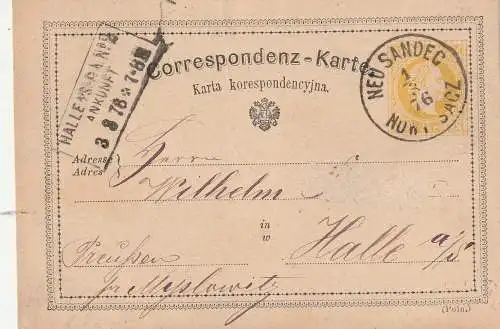 HALLE A/S. P.A. No 2
ANKUNFT
3 8 76 7-8
Correspondenz-Karte
Karta korespondencyjna.
NEU SANDEC
1 8
76
NOWY SACZ
Adresse
Adres
Herrn
Wilhelm
in
w
Halle a/S
Preußen
pr Myslowitz
(Poln.)